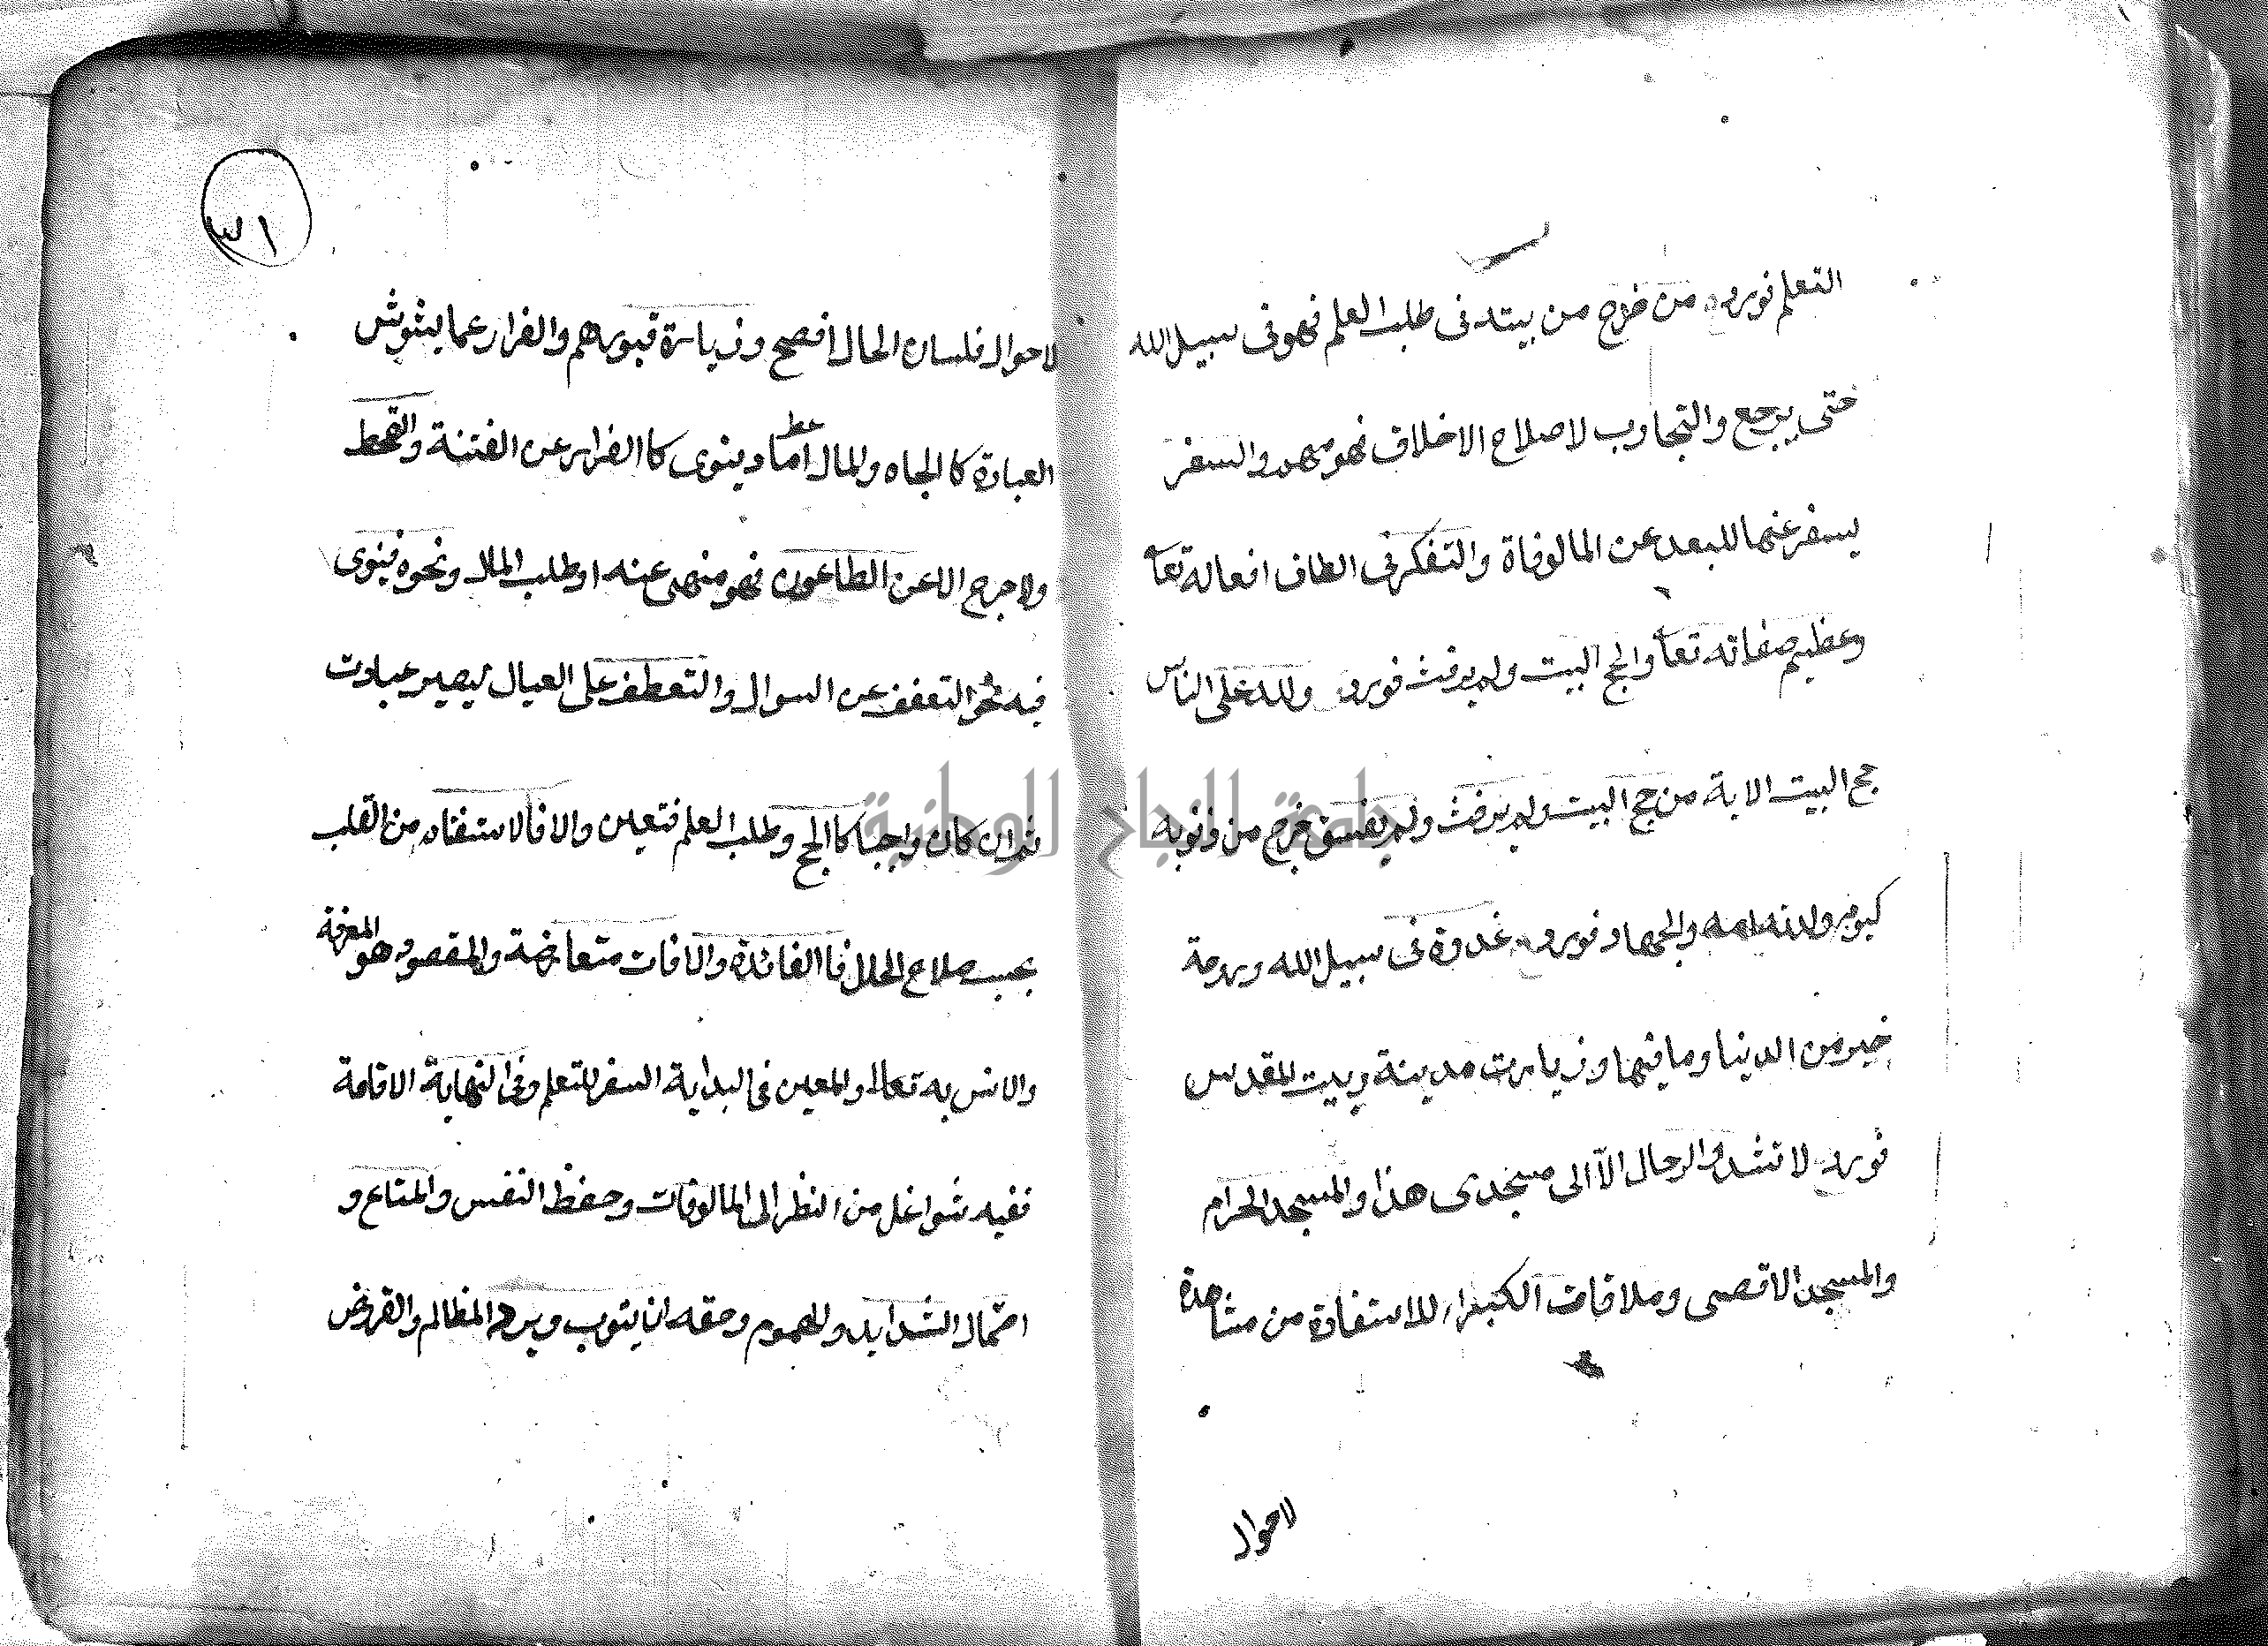 التعلم فورد من خرج من بيته فى طلب العلم فهو فى سبيل الله
حتى يرجع والتجارب لاصلاح الاخلاق فهو مهم والسفر
يسفر عنها للبعد عن المالوفاة والتفكر فى الطاف افعاله تعا
وعظيم صفاته تعا والحج البيت ولم يرفث فورد ولله على الناس
حج البيت الاية من حج البيت ولم يرفث ولم يفسق خرج من ذنوبه
كيوم ولدته امه والجهاد فورد غدوة فى سبيل الله وروحة
خير من الدنيا وما فيها وزيارت مدينة وبيت المقدس
فورد لا تشدو الرحال الآ الى مسجدى هذا والمسجد الحرام
والمسجد الاقصى وملاقات الكبراء للاستفادة من مشاهدة
لاحوال
٣١
لاحوال فلسان الحال افصح وزيارة قبورهم والفرار عما يشوش
العبادة كالجاه والمال اما دينوى كاالفرار عن الفتنة والقحط
ولا حرج الا عن الطاعون فهو منهى عنه او طلب المال ونحوه فينوى
فيه نحو التعفف عن السوال والتعطف على العيال ليصير عبادت
ثم ان كان واجبا كالحج وطلب العلم فتعين والا فالاستفتاء من القلب
بحسب صلاح الحال فاالفائدة والافات متعارضة والمقصود هو المعرفة
والانس به تعالى والمعين فى البداية السفر للتعلم وفى النهاية الاقامة
ففيه شواغل من النظر الى المالوفات وحفظ النفس والمتاع و
احتمال الشدايد والهموم وحقه ان يتوب ويرد المظالم والقروض
جامعة النجاح الوطنية